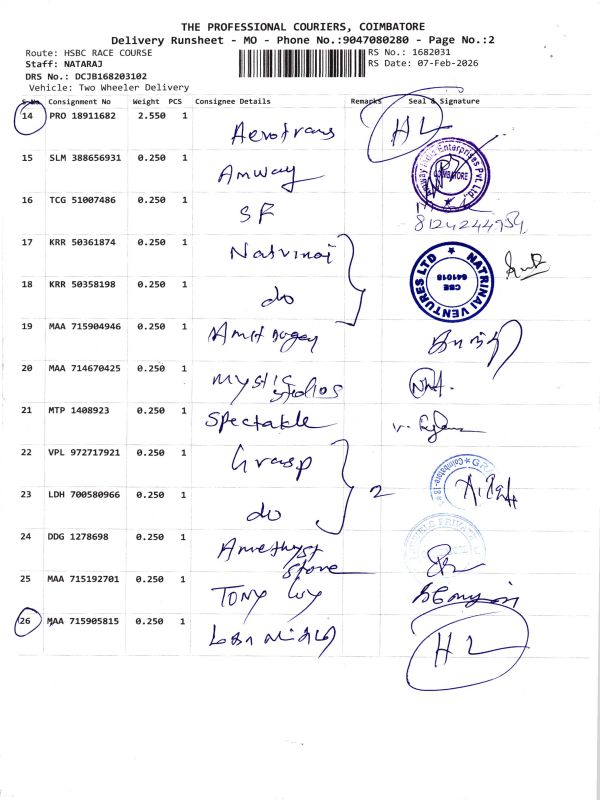 THE PROFESSIONAL COURIERS, COIMBATORE
Delivery Runsheet - MO - Phone No.:9047080280 - Page No.:2
Route: HSBC RACE COURSE RS No.: 1682031
Staff: NATARAJ RS Date: 07-Feb-2026
DRS No.: DCJB168203102
Vehicle: Two Wheeler Delivery
S.No Consignment No Weight PCS Consignee Details Remarks Seal & Signature
14 PRO 18911682 2.550 1 Aerotrans HL
15 SLM 388656931 0.250 1 Amway
16 TCG 51007486 0.250 1 SF 8124244954
17 KRR 50361874 0.250 1 Natrinai 2 NATRINAI VENTURES LTD CBE 641018
18 KRR 50358198 0.250 1 do
19 MAA 715904946 0.250 1
20 MAA 714670425 0.250 1 Mystic Studios
21 MTP 1408923 0.250 1 Spectakle
22 VPL 972717921 0.250 1 Grasp 2
23 LDH 700580966 0.250 1 do
24 DDG 1278698 0.250 1 Amethyst Stone
25 MAA 715192701 0.250 1 Tony Guy
26 MAA 715905815 0.250 1 HL